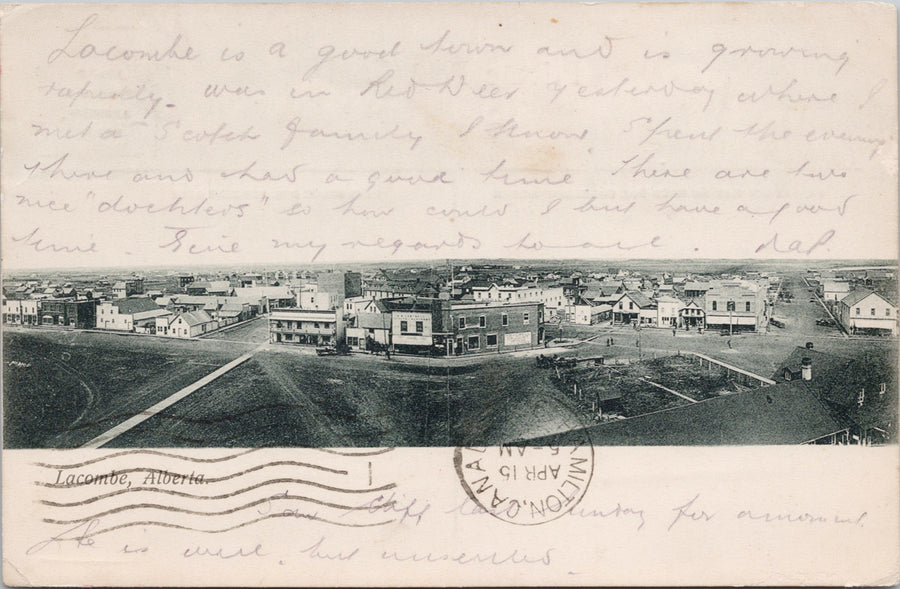 Lacombe is a good town and is growing
rapidly. was in Red Deer yesterday where I
met a Scotch family I know. Spent the evening
there and had a good time. There are two
nice "dochters" so how could I but have a good
time. Give my regards to all.
Lacombe, Alberta.
HAMILTON, CANADA
APR 15
5-AM
1
Saw Cliff last Sunday for a moment.
He is well but unsettled.